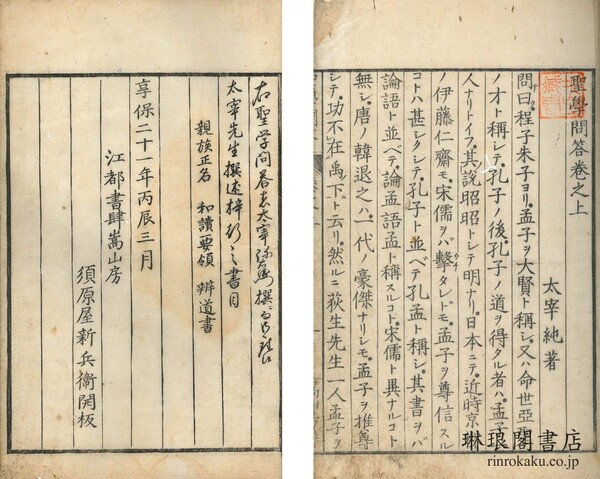 聖學問答卷之上
太宰純著
問曰程子朱子ヨリ孟子ヲ大賢ト稱シ又ハ命世亞聖
ノ才ト稱シテ孔子ノ後孔子ノ道ヲ得タル者ハ孟子一
人ナリトイフ其說昭昭トシテ明ナリ日本ニテ近時京
ノ伊藤仁齋モ宋儒ヲバ擊タレドモ孟子ヲ尊信スル
コトハ甚シクシテ孔子ト並ベテ孔孟ト稱シ其書ヲバ
論語ト並ベテ論孟語孟ト稱スルコト宋儒ト異ナルコト
無シ唐ノ韓退之ハ一代ノ豪傑ナリシモ孟子ヲ推尊
シテ功不在禹下ト云リ然ルニ荻生先生一人孟子ヲ
右聖学問答者太宰
太宰先生撰述梓行之書目
親族正名 和讀要領 辨道書
享保二十一年丙辰三月
江都書肆嵩山房
須原屋新兵衞開板
琳琅閣書店
rinrokaku.co.jp